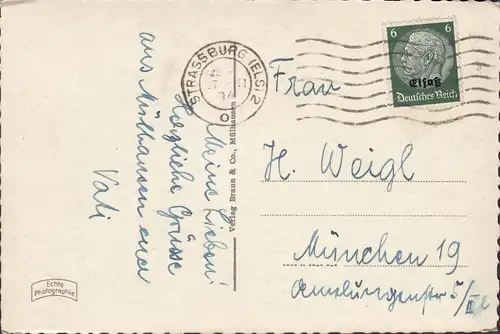 Meine Lieben!
Herzliche Grüsse
aus Mülhausen euer
Vati
Echte
Photographie
Verlag Braun & Co., Mülhausen
STRASSBURG (ELS) 2
6 6
Elsaß
Deutsches Reich
Frau
H. Weigl
München 19
5/II